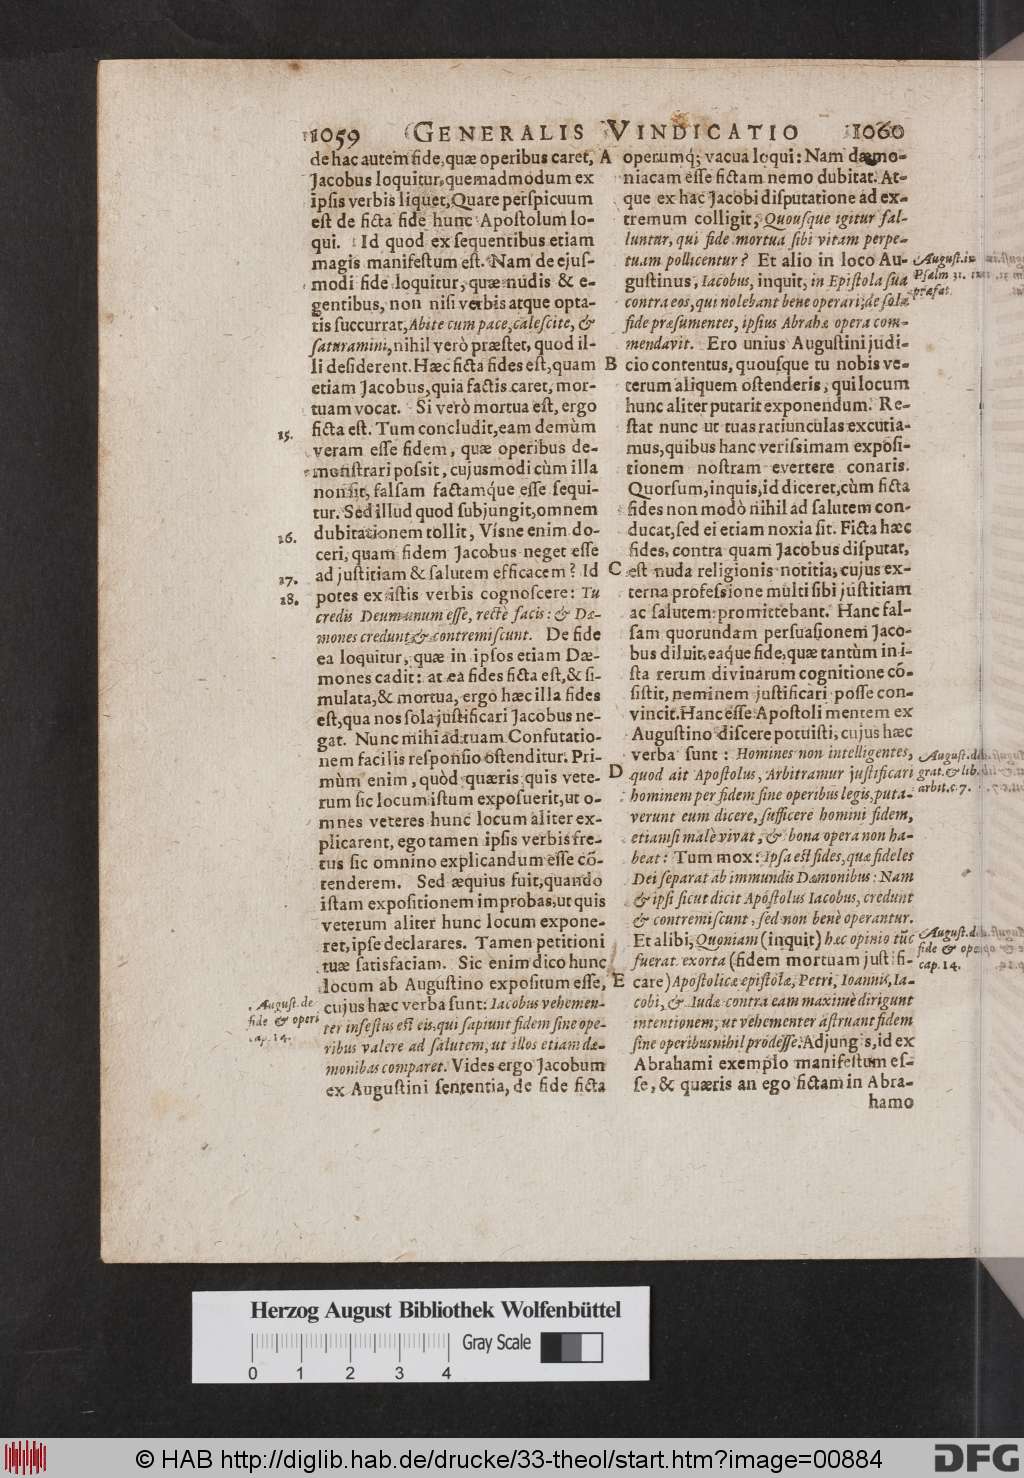 1059 GENERALIS VINDICATIO 1060
de hac autem fide, quæ operibus caret,
Jacobus loquitur, quemadmodum ex
ipſis verbis liquet, Quare perſpicuum
eſt de ficta fide hunc Apoſtolum lo-
qui. Id quod ex ſequentibus etiam
magis manifeſtum eſt. Nam de ejuſ-
modi fide loquitur, quæ nudis & e-
gentibus, non niſi verbis atque opta-
tis ſuccurrat, Abite cum pace, caleſcite, &
ſaturamini, nihil verò præſtet, quod il-
li deſiderent. Hæc ficta fides eſt, quam
etiam Jacobus, quia factis caret, mor-
tuam vocat. Si verò mortua eſt, ergo
ficta eſt. Tum concludit, eam demùm
15.
veram eſſe fidem, quæ operibus de-
monſtrari poſsit, cujusmodi cùm illa
non ſit, falſam factamq́ue eſſe ſequi-
tur. Sed illud quod ſubjungit, omnem
dubitationem tollit, Vísne enim do-
16.
ceri, quam fidem Jacobus neget eſſe
ad juſtitiam & ſalutem efficacem? Id
17.
potes ex iſtis verbis cognoſcere: Tu
18.
credis Deum unum eſſe, recte facis: & Dæ-
mones credunt, & contremiſcunt. De fide
ea loquitur, quæ in ipſos etiam Dæ-
mones cadit: at ea fides ficta eſt, & ſi-
mulata, & mortua, ergo hæc illa fides
eſt, qua nos ſola juſtificari Jacobus ne-
gat. Nunc mihi ad tuam Confutatio-
nem facilis reſponſio oſtenditur. Pri-
mùm enim, quòd quæris quis vete-
rum ſic locum iſtum expoſuerit, ut o-
mnes veteres hunc locum aliter ex-
plicarent, ego tamen ipſis verbis fre-
tus ſic omnino explicandum eſſe cō-
tenderem. Sed æquius fuit, quando
iſtam expoſitionem improbas, ut quis
veterum aliter hunc locum expone-
ret, ipſe declarares. Tamen petitioni
tuæ ſatisfaciam. Sic enim dico hunc
locum ab Auguſtino expoſitum eſſe,
cujus hæc verba ſunt: Iacobus vehemen-
Auguſt. de
fide & operi
cap. 14.
ter infeſtus eſt eis, qui ſapiunt fidem ſine ope-
ribus valere ad ſalutem, ut illos etiam dæ-
monibus comparet. Vides ergo Jacobum
ex Auguſtini ſententia, de fide ficta
A
B
C
D
E
operumq́; vacua loqui: Nam dæmo-
niacam eſſe fictam nemo dubitat. At-
que ex hac Jacobi diſputatione ad ex-
tremum colligit, Quouſque igitur fal-
luntur, qui fide mortua ſibi vitam perpe-
tuam pollicentur? Et alio in loco Au-
Auguſt. in
Pſalm 31.
præfat.
guſtinus, Iacobus, inquit, in Epiſtola ſua
contra eos, qui nolebant bene operari, de ſola
fide præſumentes, ipſius Abrahæ opera com-
mendavit. Ero unius Auguſtini judi-
cio contentus, quouſque tu nobis ve-
terum aliquem oſtenderis, qui locum
hunc aliter putarit exponendum. Re-
ſtat nunc ut tuas ratiunculas excutia-
mus, quibus hanc veriſsimam expoſi-
tionem noſtram evertere conaris.
Quorſum, inquis, id diceret, cùm ficta
fides non modò nihil ad ſalutem con-
ducat, ſed ei etiam noxia ſit. Ficta hæc
fides, contra quam Jacobus diſputat,
eſt nuda religionis notitia, cujus ex-
terna profeſsione multi ſibi juſtitiam
ac ſalutem promittebant. Hanc fal-
ſam quorundam perſuaſionem Jaco-
bus diluit, eaq́ue fide, quæ tantùm in i-
ſta rerum divinarum cognitione cō-
ſiſtit, neminem juſtificari poſſe con-
vincit. Hanc eſſe Apoſtoli mentem ex
Auguſtino diſcere potuiſti, cujus hæc
verba ſunt: Homines non intelligentes,
Auguſt. de
grat. & lib.
arbit. c. 7.
quod ait Apoſtolus, Arbitramur juſtificari
hominem per fidem ſine operibus legis, puta-
verunt eum dicere, ſufficere homini fidem,
etiamſi malè vivat, & bona opera non ha-
beat: Tum mox: Ipſa eſt fides, quæ fideles
Dei ſeparat ab immundis Dæmonibus: Nam
& ipſi ſicut dicit Apoſtolus Iacobus, credunt
& contremiſcunt, ſed non benè operantur.
Et alibi, Quoniam (inquit) hæc opinio tūc
Auguſt. de
fide & ope
cap. 14.
fuerat exorta (fidem mortuam juſtifi-
care) Apoſtolicæ epiſtolæ, Petri, Ioannis, Ia-
cobi, & Iudæ contra eam maximè dirigunt
intentionem, ut vehementer aſtruant fidem
ſine operibus nihil prodeſſe. Adjungis, id ex
Abrahami exemplo manifeſtum eſ-
ſe, & quæris an ego fictam in Abra-
hamo
Herzog August Bibliothek Wolfenbüttel
Gray Scale
0 1 2 3 4
© HAB http://diglib.hab.de/drucke/33-theol/start.htm?image=00884
DFG